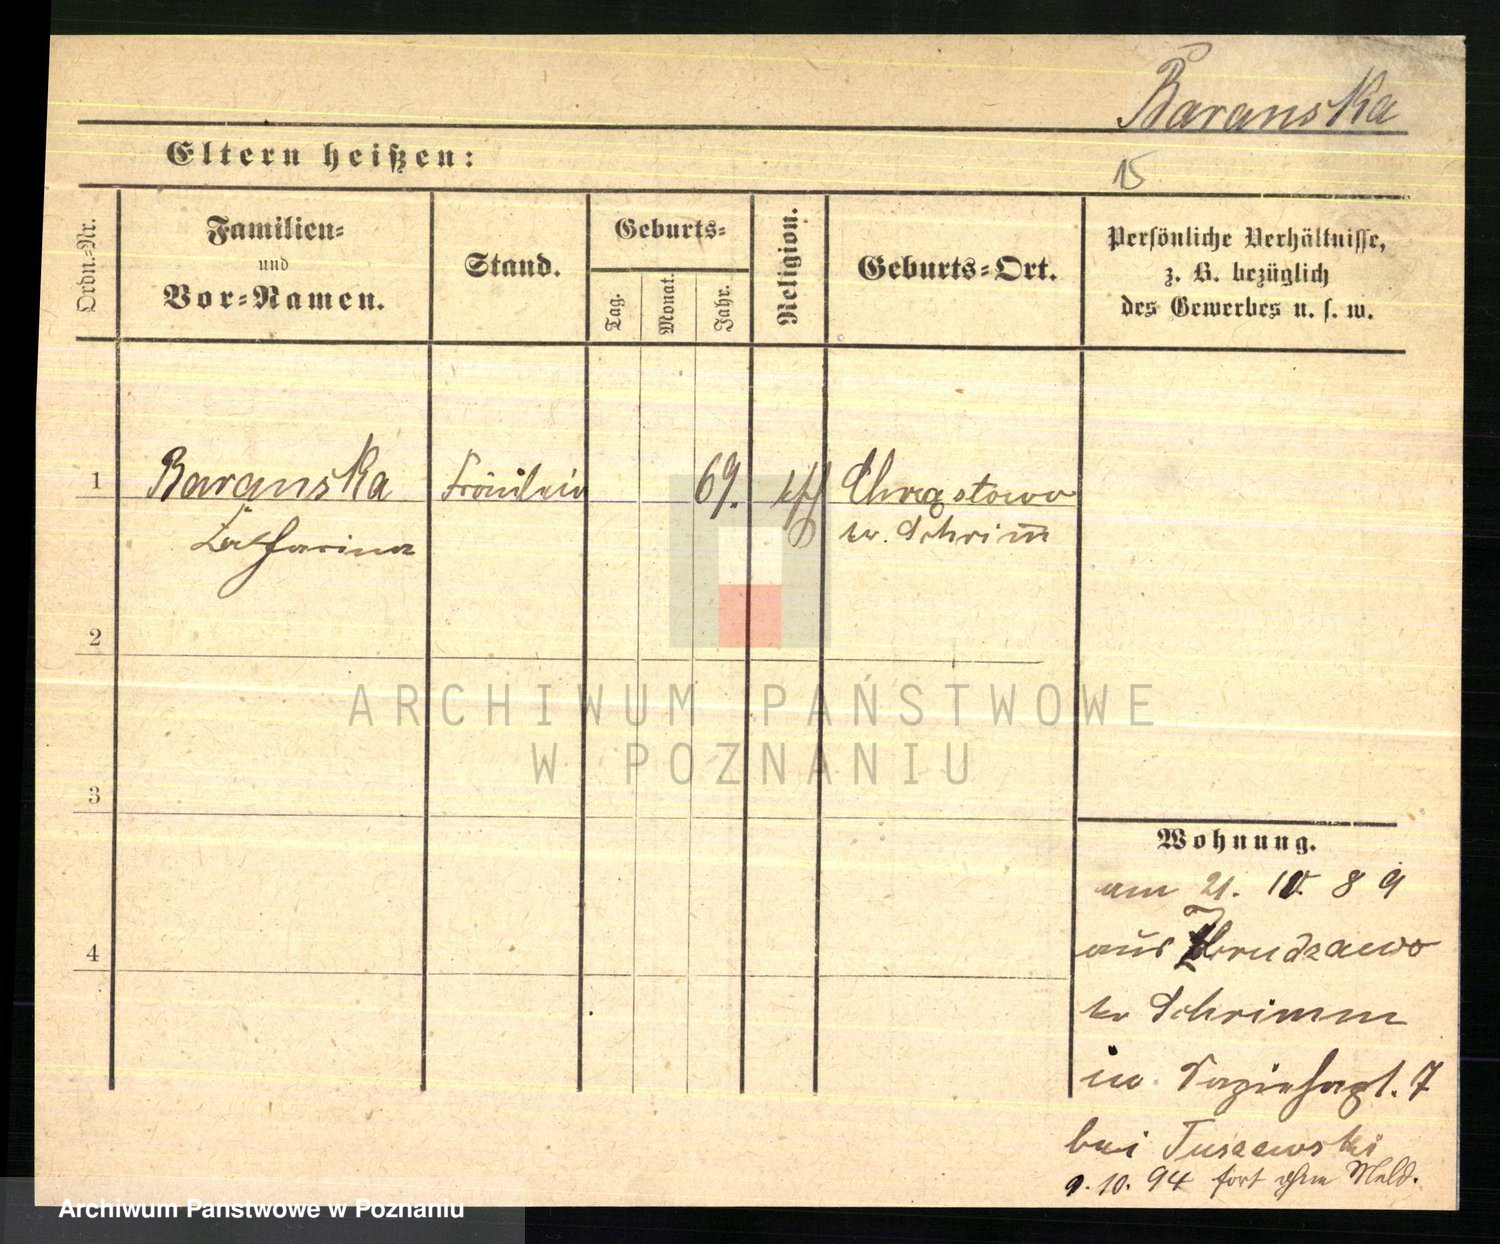 Baranska
Eltern heißen:
15
Ordn.-Nr.
Familien-
und
Vor-Namen.
Stand.
Geburts-
Tag.
Monat.
Jahr.
Religion.
Geburts-Ort.
Persönliche Verhältnisse,
z. B. bezüglich
des Gewerbes u. s. w.
1
Baranska
Fräulein
69.
kth
Chrząstowo
Catharina
kr. Schrim̅
2
ARCHIWUM PAŃSTWOWE
W POZNANIU
3
Wohnung.
am 21. 10. 89
4
aus
kr Schrimm
in Sapiehapl. 7
bei Tuszewski
9. 10. 94 fort ohne Meld.
Archiwum Państwowe w Poznaniu